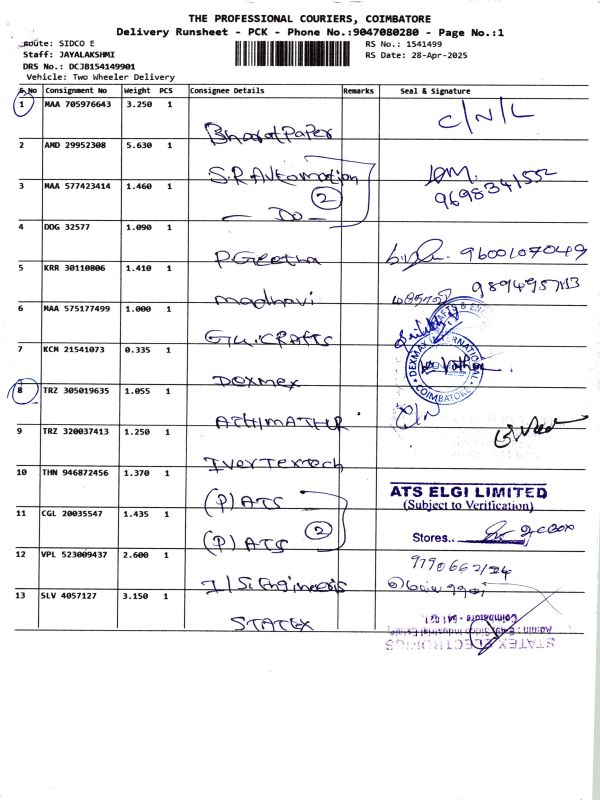 THE PROFESSIONAL COURIERS, COIMBATORE
Delivery Runsheet - PCK - Phone No.:9047080280 - Page No.:1
Route: SIDCO E
RS No.: 1541499
Staff: JAYALAKSHMI
RS Date: 28-Apr-2025
DRS No.: DCJB154149901
Vehicle: Two Wheeler Delivery
S.No Consignment No Weight PCS Consignee Details Remarks Seal & Signature
1 MAA 705976643 3.250 1 Bharat Paper C/N/L
2 AMD 29952308 5.630 1 S.R Automation
3 MAA 577423414 1.460 1 - Do - 2 9698341552
4 DDG 32577 1.090 1 P Geetha 9600107049
5 KRR 30110806 1.410 1 madhavi
6 MAA 575177499 1.000 1 G.U.CRAFTS
7 KCM 21541073 0.335 1 DOXMEX DEXMAX INTERNATIONAL COIMBATORE
8 TRZ 305019635 1.055 1 C/N
9 TRZ 320037413 1.250 1 Ivertextech
10 THN 946872456 1.370 1 (P) ATS ATS ELGI LIMITED
(Subject to Verification)
11 CGL 20035547 1.435 1 (P) ATS 2 Stores..
12 VPL 523009437 2.600 1 I/S. Engineers
13 SLV 4057127 3.150 1 STATEX
Coimbatore - 641 021.
STATEX ELECTRONICS